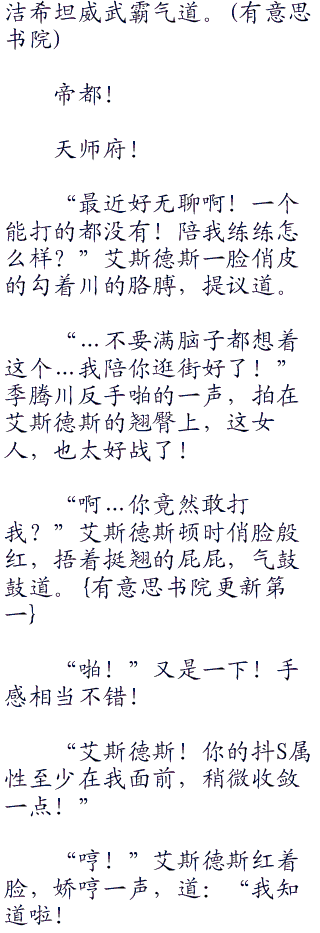 洁希坦威武霸气道。(有意思
书院)
帝都！
天师府！
“最近好无聊啊！一个
能打的都没有！陪我练练怎
么样？”艾斯德斯一脸俏皮
的勾着川的胳膊，提议道。
“…不要满脑子都想着
这个…我陪你逛街好了！”
季腾川反手啪的一声，拍在
艾斯德斯的翘臀上，这女
人，也太好战了！
“啊…你竟然敢打
我？”艾斯德斯顿时俏脸殷
红，捂着挺翘的屁屁，气鼓
鼓道。{有意思书院更新第
一}
“啪！”又是一下！手
感相当不错！
“艾斯德斯！你的抖S属
性至少在我面前，稍微收敛
一点！”
“哼！”艾斯德斯红着
脸，娇哼一声，道：“我知
道啦！